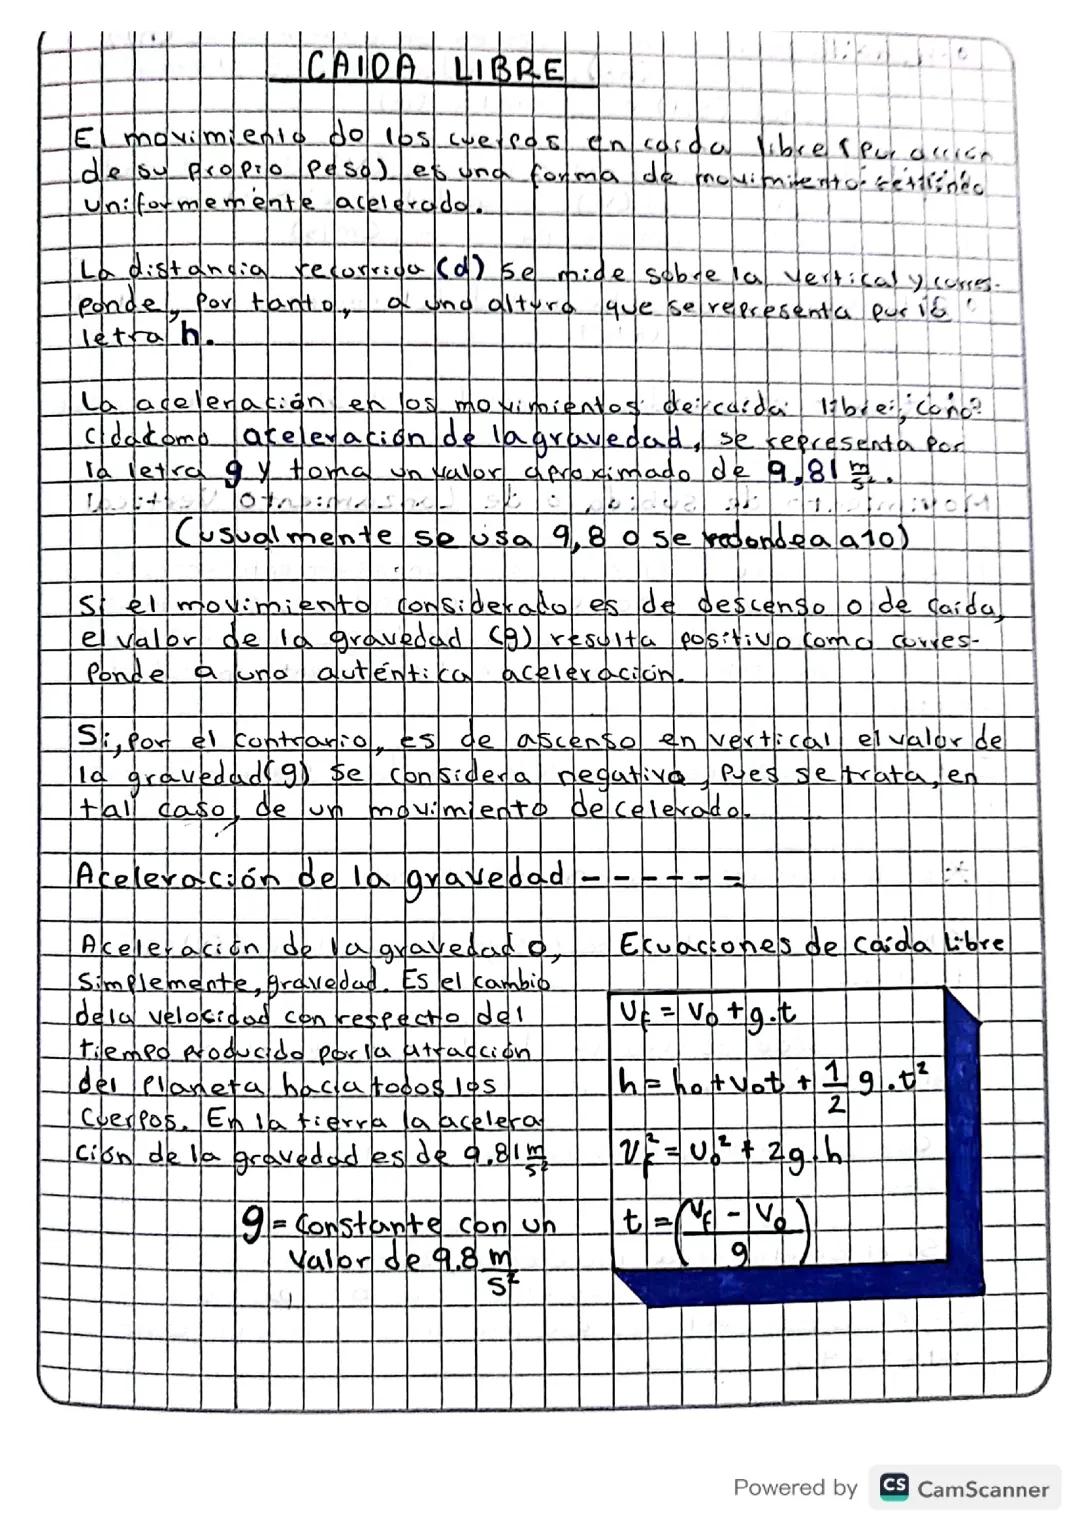 CAIDA LIBRE
El movimiento de los cuerpos en caida libre (por acción
de su propio peso) es una forma de movimiento rectilíneo
uniformemente acelerado.
La distancia recorrida (d) se mide sobre la vertical y corres-
ponde, por tanto, a una altura que se representa por la
letra h.
La aceleración en los movimientos de caida libre, cono-
cida como aceleración de la gravedad, se representa por
la letra g y toma un valor aproximado de 9,81 m/s².
(usualmente se usa 9,8 o se redondea a 10)
Si el movimiento considerado es de descenso o de caida,
el valor de la gravedad (g) resulta positivo como corres-
ponde a una auténtica aceleración.
Si, por el contrario, es de ascenso en vertical el valor de
la gravedad (g) se considera negativa, pues se trata, en
tal caso, de un movimiento decelerado.
Aceleración de la gravedad - - - - - =
Aceleración de la gravedad o,
simplemente, gravedad. Es el cambio
de la velocidad con respecto del
tiempo producido por la atracción
del planeta hacia todos los
cuerpos. En la tierra la acelera
ción de la gravedad es de 9.81 m/s²
g = Constante con un
valor de 9.8 m/s²
Ecuaciones de caida Libre
Vf = Vo + g.t
h = ho + Vot + 1/2 g.t²
Vf² = Vo² + 2g.h
t = (Vf - Vo / g)
Powered by CS CamScanner